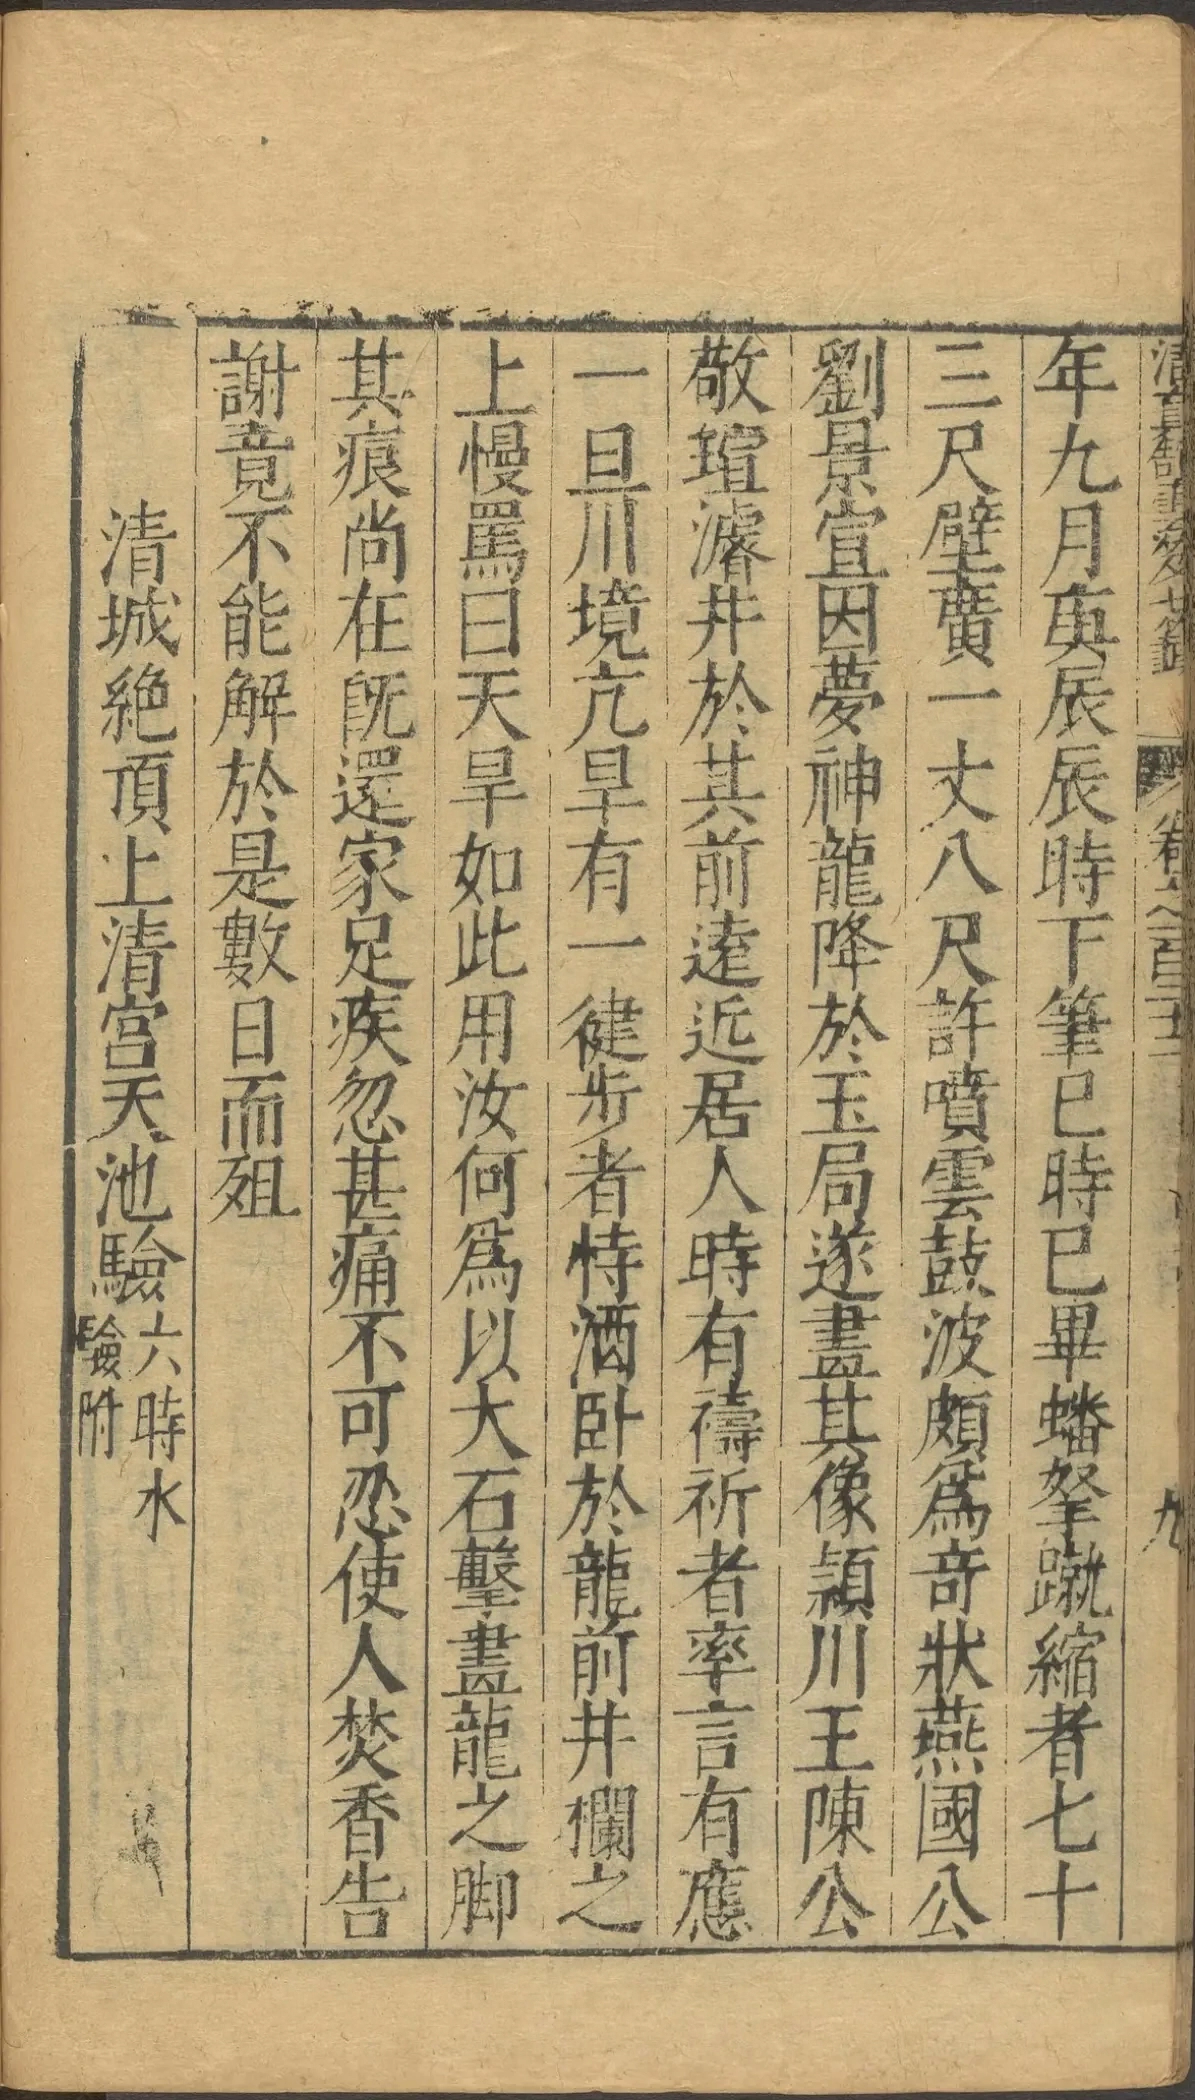 年九月庚辰辰時下筆巳時已畢蟠拏蹴縮者七十
三尺壁廣一丈八尺許噴雲鼓波頗爲奇狀燕國公
劉景宣因夢神龍降於玉局遂畫其像潁川王陳公
敬瑄濬井於其前遠近居人時有禱祈者率言有應
一旦川境亢旱有一健步者恃酒卧於龍前井欄之
上慢罵曰天旱如此用汝何爲以大石鑿畫龍之脚
其痕尚在旣還家足疾忽甚痛不可忍使人焚香告
謝竟不能解於是數日而殂
清城絶頂上清宮天池驗六時水
驗附